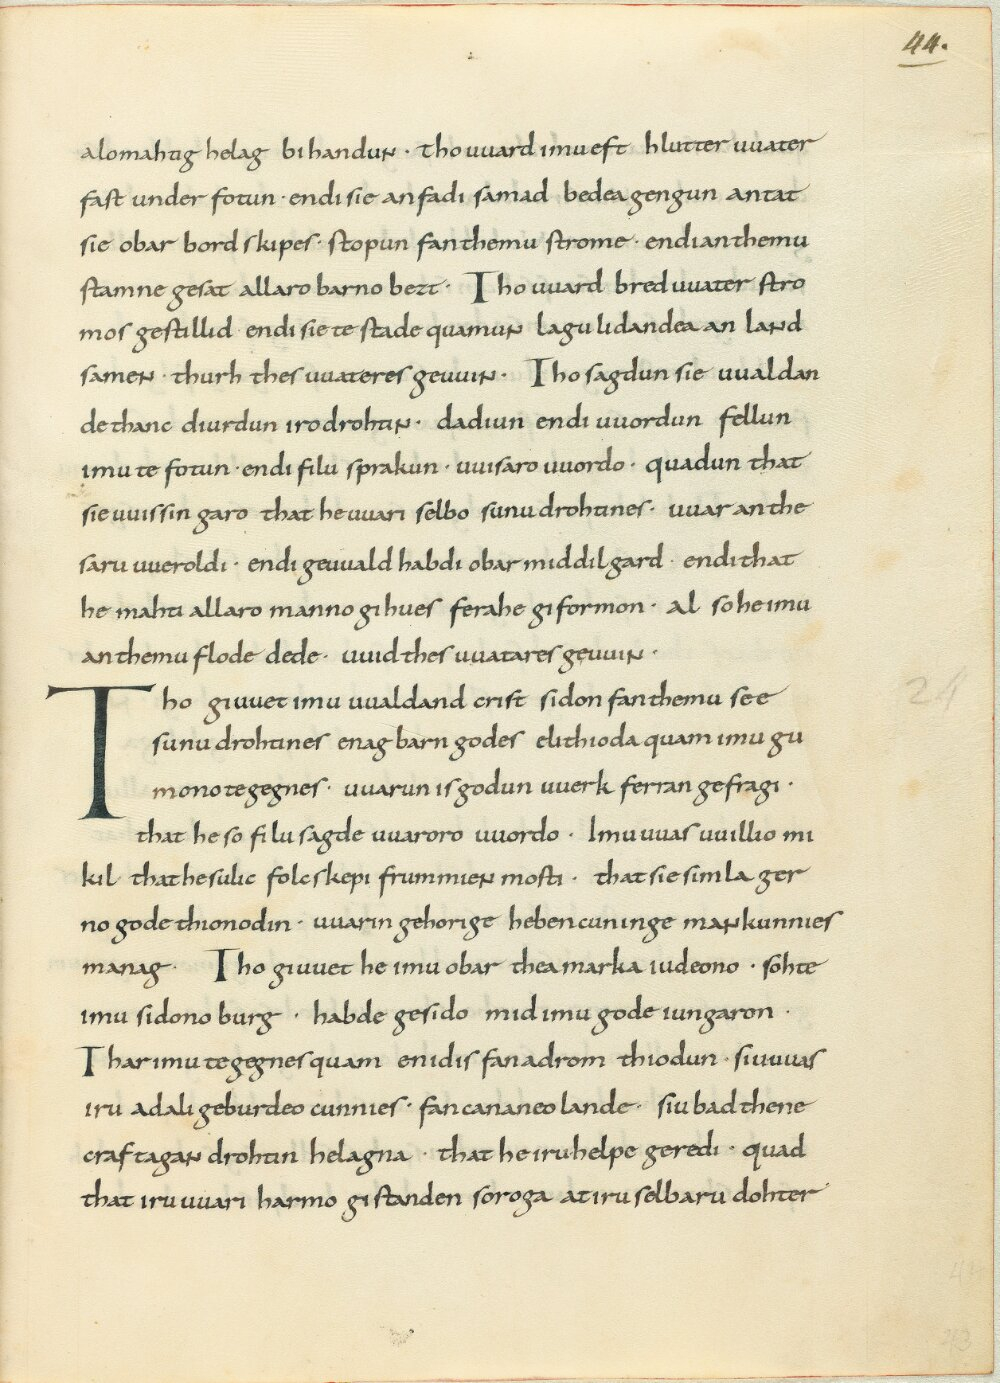 44.
alomahtig helag bi handun · tho uuard imu eft hlutter uuater
fast under fotun · endi sie an fadi samad bedea gengun antat
sie obar bord skipes · stopun fan themu strome · endi an themu
stamne gesat allaro barno bezt · Tho uuard bred uuater stro
mos gestillid endi sie te stade quamun lagu lidandea an land
samen · thurh thes uuateres geuuin · Tho sagdun sie uualdan
de thanc diurdun iro drohtin · dadiun endi uuordun fellun
imu te fotun · endi filu sprakun · uuisaro uuordo · quadun that
sie uuissin garo that he uuari selbo sunu drohtines · uuar an the
saru uueroldi · endi geuuald habdi obar middilgard · endi that
he mahti allaro manno gihues ferahe giformon · al so he imu
an themu flode dede · uuid thes uuatares geuuin ·
Tho giuuet imu uualdand crist sidon fan themu see
sunu drohtines enag barn godes elithioda quam imu gu
mono tegegnes · uuarun is godun uuerk ferran gefragi ·
that he so filu sagde uuaroro uuordo · Imu uuas uuillio mi
kil that he sulic folcskepi frummien mosti · that sie simla ger
no gode thionodin · uuarin gehorige hebencuninge mankunnies
manag · Tho giuuet he imu obar thea marka iudeono · sohte
imu sidono burg · habde gesido mid imu gode iungaron ·
Thar imu tegegnes quam en idis fan adrom thiodun · siu uuas
iru adali geburdeo cunnies · fan cananeo lande · siu bad thene
craftagan drohtin helagna · that he iru helpe geredi · quad
that iru uuari harmo gistanden soroga at iru selbaru dohter
24